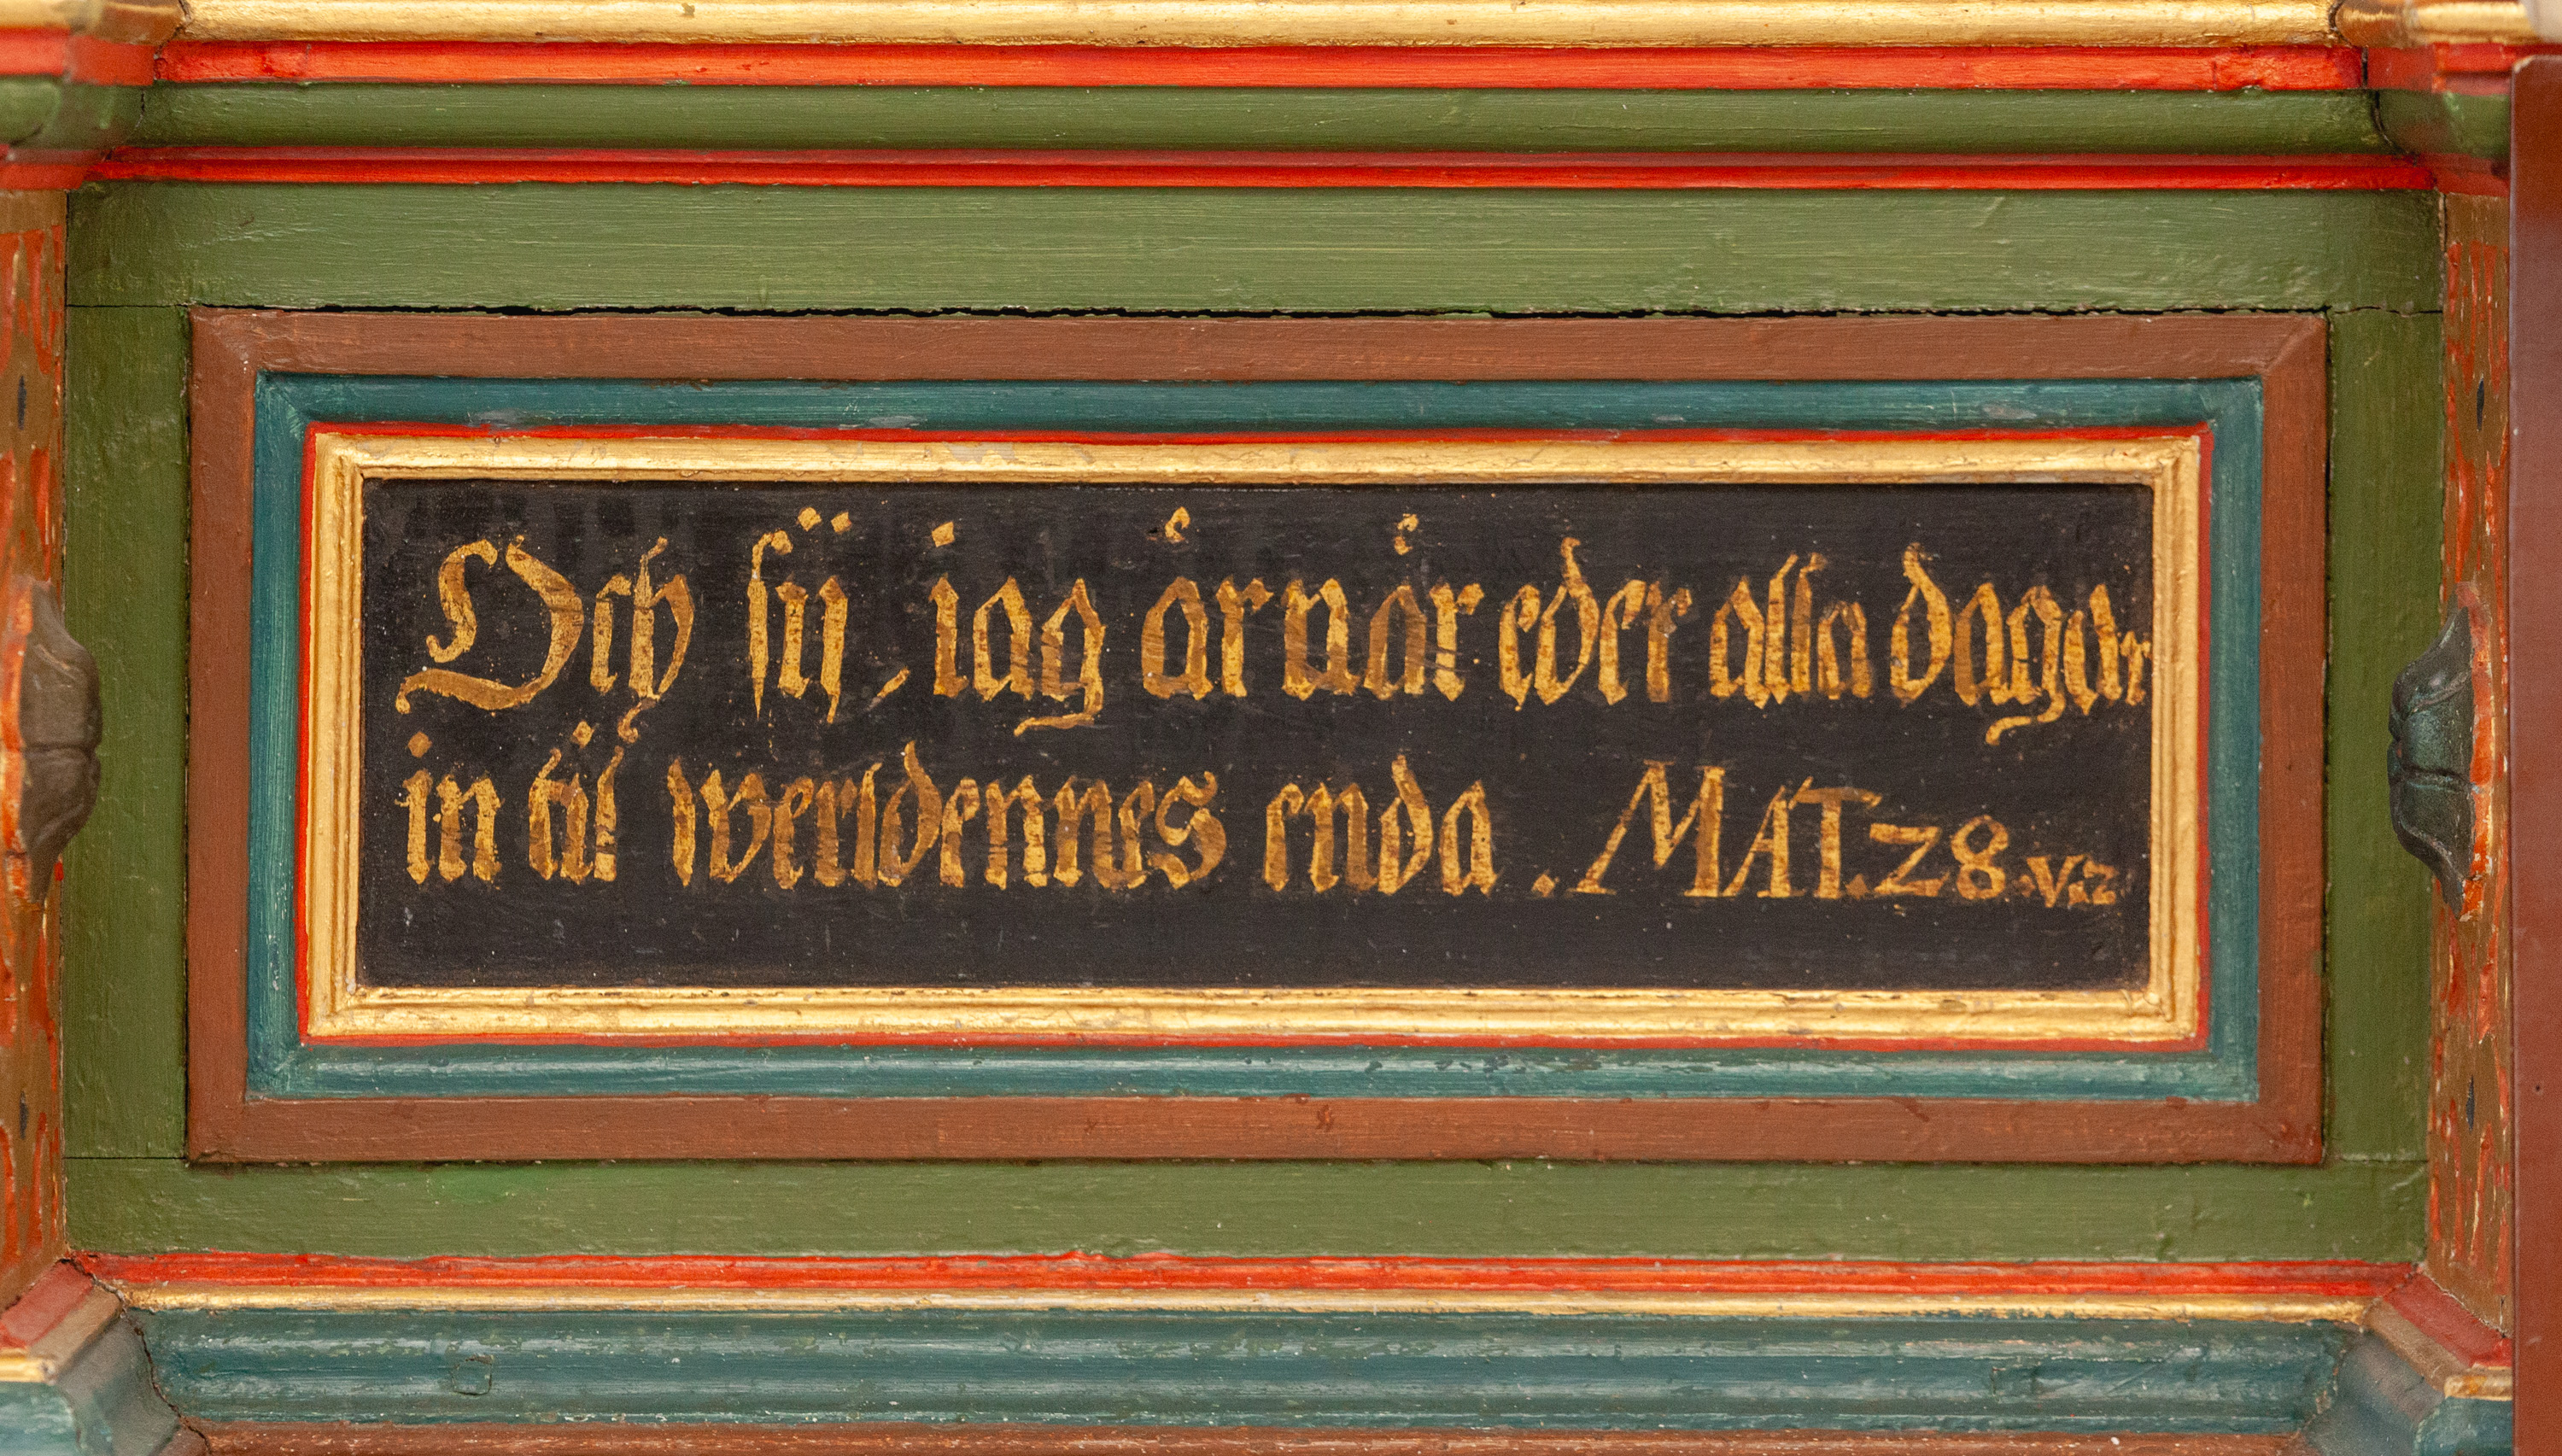 Och sii, iag är när eder alla dagar
in til werldennes enda. MAT.28.v.2